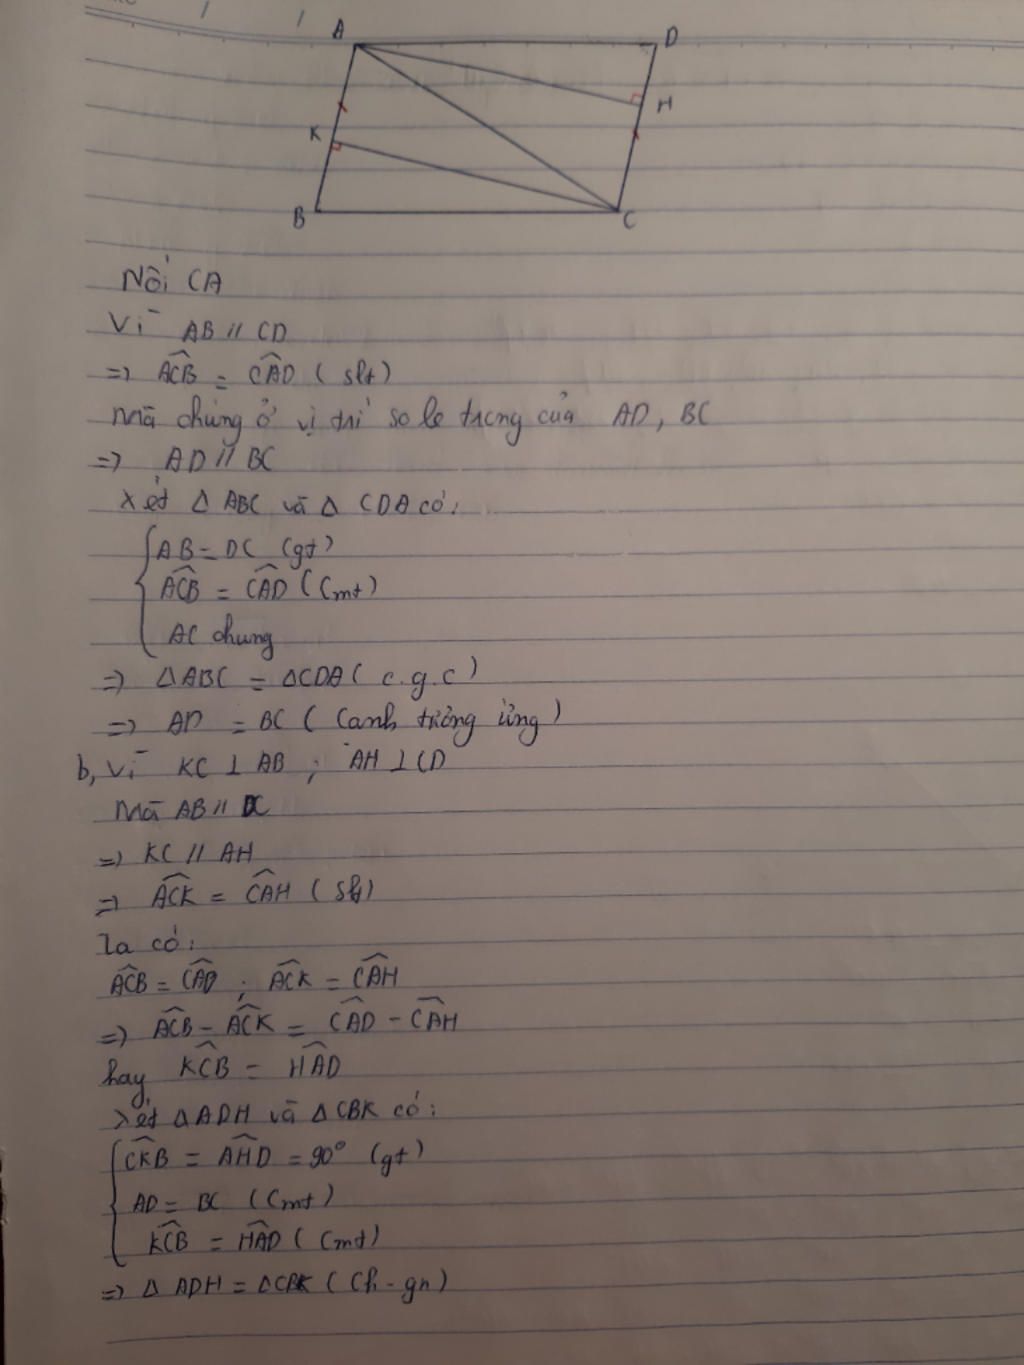 A
D
H
K
B
C
Nối CA
Vì AB // CD
=> ACB = CAD ( slt)
Mà chúng ở vị trí so le trong của AD, BC
=> AD // BC
Xét Δ ABC và Δ CDA có:
AB = DC (gt)
ACB = CAD (Cmt)
AC chung
=> ΔABC = ΔCDA ( c.g.c )
=> AD = BC ( Canh tương ứng )
b, Vì KC ⊥ AB ; AH ⊥ CD
Mà AB // DC
=> KC // AH
=> ACK = CAH ( Slt)
Ta có:
ACB = CAD ; ACK = CAH
=> ACB - ACK = CAD - CAH
hay KCB = HAD
Xét ΔADH và ΔCBK có:
CKB = AHD = 90° (gt)
AD = BC (Cmt)
KCB = HAD ( Cmt)
=> Δ ADH = ΔCBK ( Ch - gn )